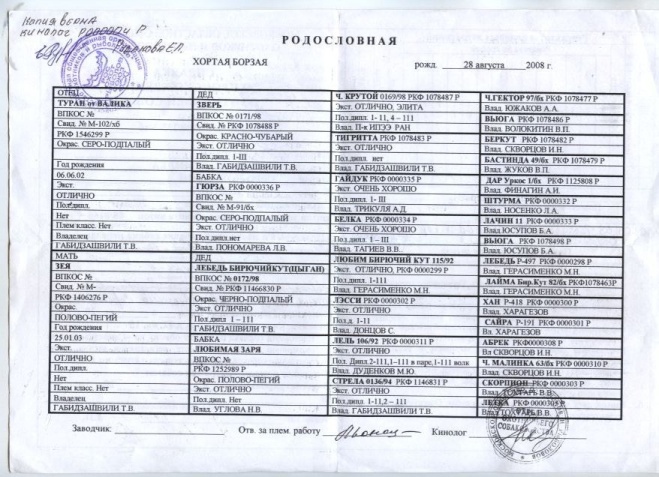 Копия верна
кинолог РОООООиР
Р О Д О С Л О В Н А Я
ХОРТАЯ БОРЗАЯ рожд. 28 августа 2008 г.
ОТЕЦ
ТУРАН от ВАЛИКА
ВПКОС №
Свид. № М-102/хб
РКФ 1546299 Р
Окрас. СЕРО-ПОДПАЛЫЙ
Год рождения
06.06.02
Экст.
ОТЛИЧНО
Пол.дипл.
Нет
Плем класс. Нет
Владелец
ГАБИДЗАШВИЛИ Т.В.
МАТЬ
ЗЕЯ
ВПКОС №
Свид. № М-
РКФ 1406276 Р
Окрас.
ПОЛОВО-ПЕГИЙ
Год рождения
25.01.03
Экст.
ОТЛИЧНО
Пол.дипл.
Нет
Плем класс. Нет
Владелец
ГАБИДЗАШВИЛИ Т.В.
ДЕД
ЗВЕРЬ
ВПКОС № 0171/98
Свид. № РКФ 1078488 Р
Окрас. КРАСНО-ЧУБАРЫЙ
Экст. ОТЛИЧНО
Пол.дипл. 1-III
Влад. ГАБИДЗАШВИЛИ Т.В.
БАБКА
ГЮРЗА РКФ 0000336 Р
ВПКОС №
Свид. № М-91/бх
Окрас. СЕРО-ПОДПАЛЫЙ
Экст. ОТЛИЧНО
Пол.дипл.нет
Влад. ПОНОМАРЕВА Л.В.
ДЕД
ЛЕБЕДЬ БИРЮЧИЙКУТ(ЦЫГАН)
ВПКОС № 0172/98
Свид. № РКФ 11466830 Р
Окрас. ЧЕРНО-ПОДПАЛЫЙ
Экст. ОТЛИЧНО
Пол.дипл 1 – III
ГАБИДЗАШВИЛИ Т.В.
БАБКА
ЛЮБИМАЯ ЗАРЯ
ВПКОС №
РКФ 1252989 Р
Окрас. ПОЛОВО-ПЕГИЙ
Экст. ОТЛИЧНО
Пол.дипл. Нет
Влад. УГЛОВА Н.В.
Ч. КРУТОЙ 0169/98 РКФ 1078487 Р
Экст. ОТЛИЧНО, ЭЛИТА
Пол.дипл. 1- 11, 4 – 111
Влад. П-к ИПЭЭ РАН
ТИГРИТТА РКФ 1078483 Р
Экст. ОТЛИЧНО
Пол.дипл. нет
Влад. ГАБИДЗАШВИЛИ Т.В.
ГАЙДУК РКФ 0000335 Р
Экст. ОЧЕНЬ ХОРОШО
Пол.дипл. 1- III
Влад. ТРИКУЛЯ А.Д.
БЕЛКА РКФ 0000334 Р
Экст. ОЧЕНЬ ХОРОШО
Пол.дипл. 1 – III
Влад. ТАГИЕВ В.В.
ЛЮБИМ БИРЮЧИЙ КУТ 115/92
Экст. ОТЛИЧНО, РКФ 0000299 Р
Пол.дипл. 1-111
Влад. ГЕРАСИМЕНКО М.Н.
ЛЭССИ РКФ 0000302 Р
Экст. ОТЛИЧНО
Пол.д. 1-111
Влад. ДОНЦОВ С.
ЛЕЛЬ 106/92 РКФ 0000311 Р
Экст. ОТЛИЧНО
Пол. Дипл.2-111,1–111 в паре,1-111 волк
Влад. ДУДЕНКОВ М.Ю.
СТРЕЛА 0136/94 РКФ 1146831 Р
Экст. ОТЛИЧНО
Пол.дипл 1-11,2 – 111
Влад. ГАБИДЗАШВИЛИ Т.В.
Ч.ГЕКТОР 97/бх РКФ 1078477 Р
Влад. ЮЖАКОВ А.А.
ВЬЮГА РКФ 1078486 Р
Влад. ВОЛОКИТИН В.П.
БЕРКУТ РКФ 1078482 Р
Влад. СКВОРЦОВ И.Н.
БАСТИНДА 49/бх РКФ 1078479 Р
Влад. ЖУКОВ В.П.
ДАР Уркос 1/бх РКФ 1125808 Р
Влад. ФИНАГИН А.И.
ШТУРМА РКФ 0000332 Р
Влад. НОСЕНКО Л.А.
ЛАЧИН 11 РКФ 0000333 Р
Влад. ЮСУПОВ Б.А.
ВЬЮГА РКФ 1078498 Р
Влад. ЮСУПОВ Б.А.
ЛЕБЕДЬ Р-497 РКФ 0000298 Р
Влад. ГЕРАСИМЕНКО М.Н.
ЛАЙМА Бир.Кут 82/бх РКФ1078463Р
Влад. ГЕРАСИМЕНКО М.Н.
ХАН Р-418 РКФ 0000300 Р
Влад. ХАРАГЕЗОВ
САЙРА Р-191 РКФ 0000301 Р
Вл. ХАРАГЕЗОВ
АБРЕК РКФ0000308 Р
Вл СКВОРЦОВ И.Н.
Ч. МАЛИНКА 63/бх РКФ 0000310 Р
Влад. СКВОРЦОВ И.Н.
СКОРПИОН РКФ 0000303 Р
Влад. ТОХТАРЬ В.В.
ЛЕТКА РКФ 0000305 Р
Влад. ТОХТАРЬ В.В.
Заводчик: Отв. за плем. работу Кинолог